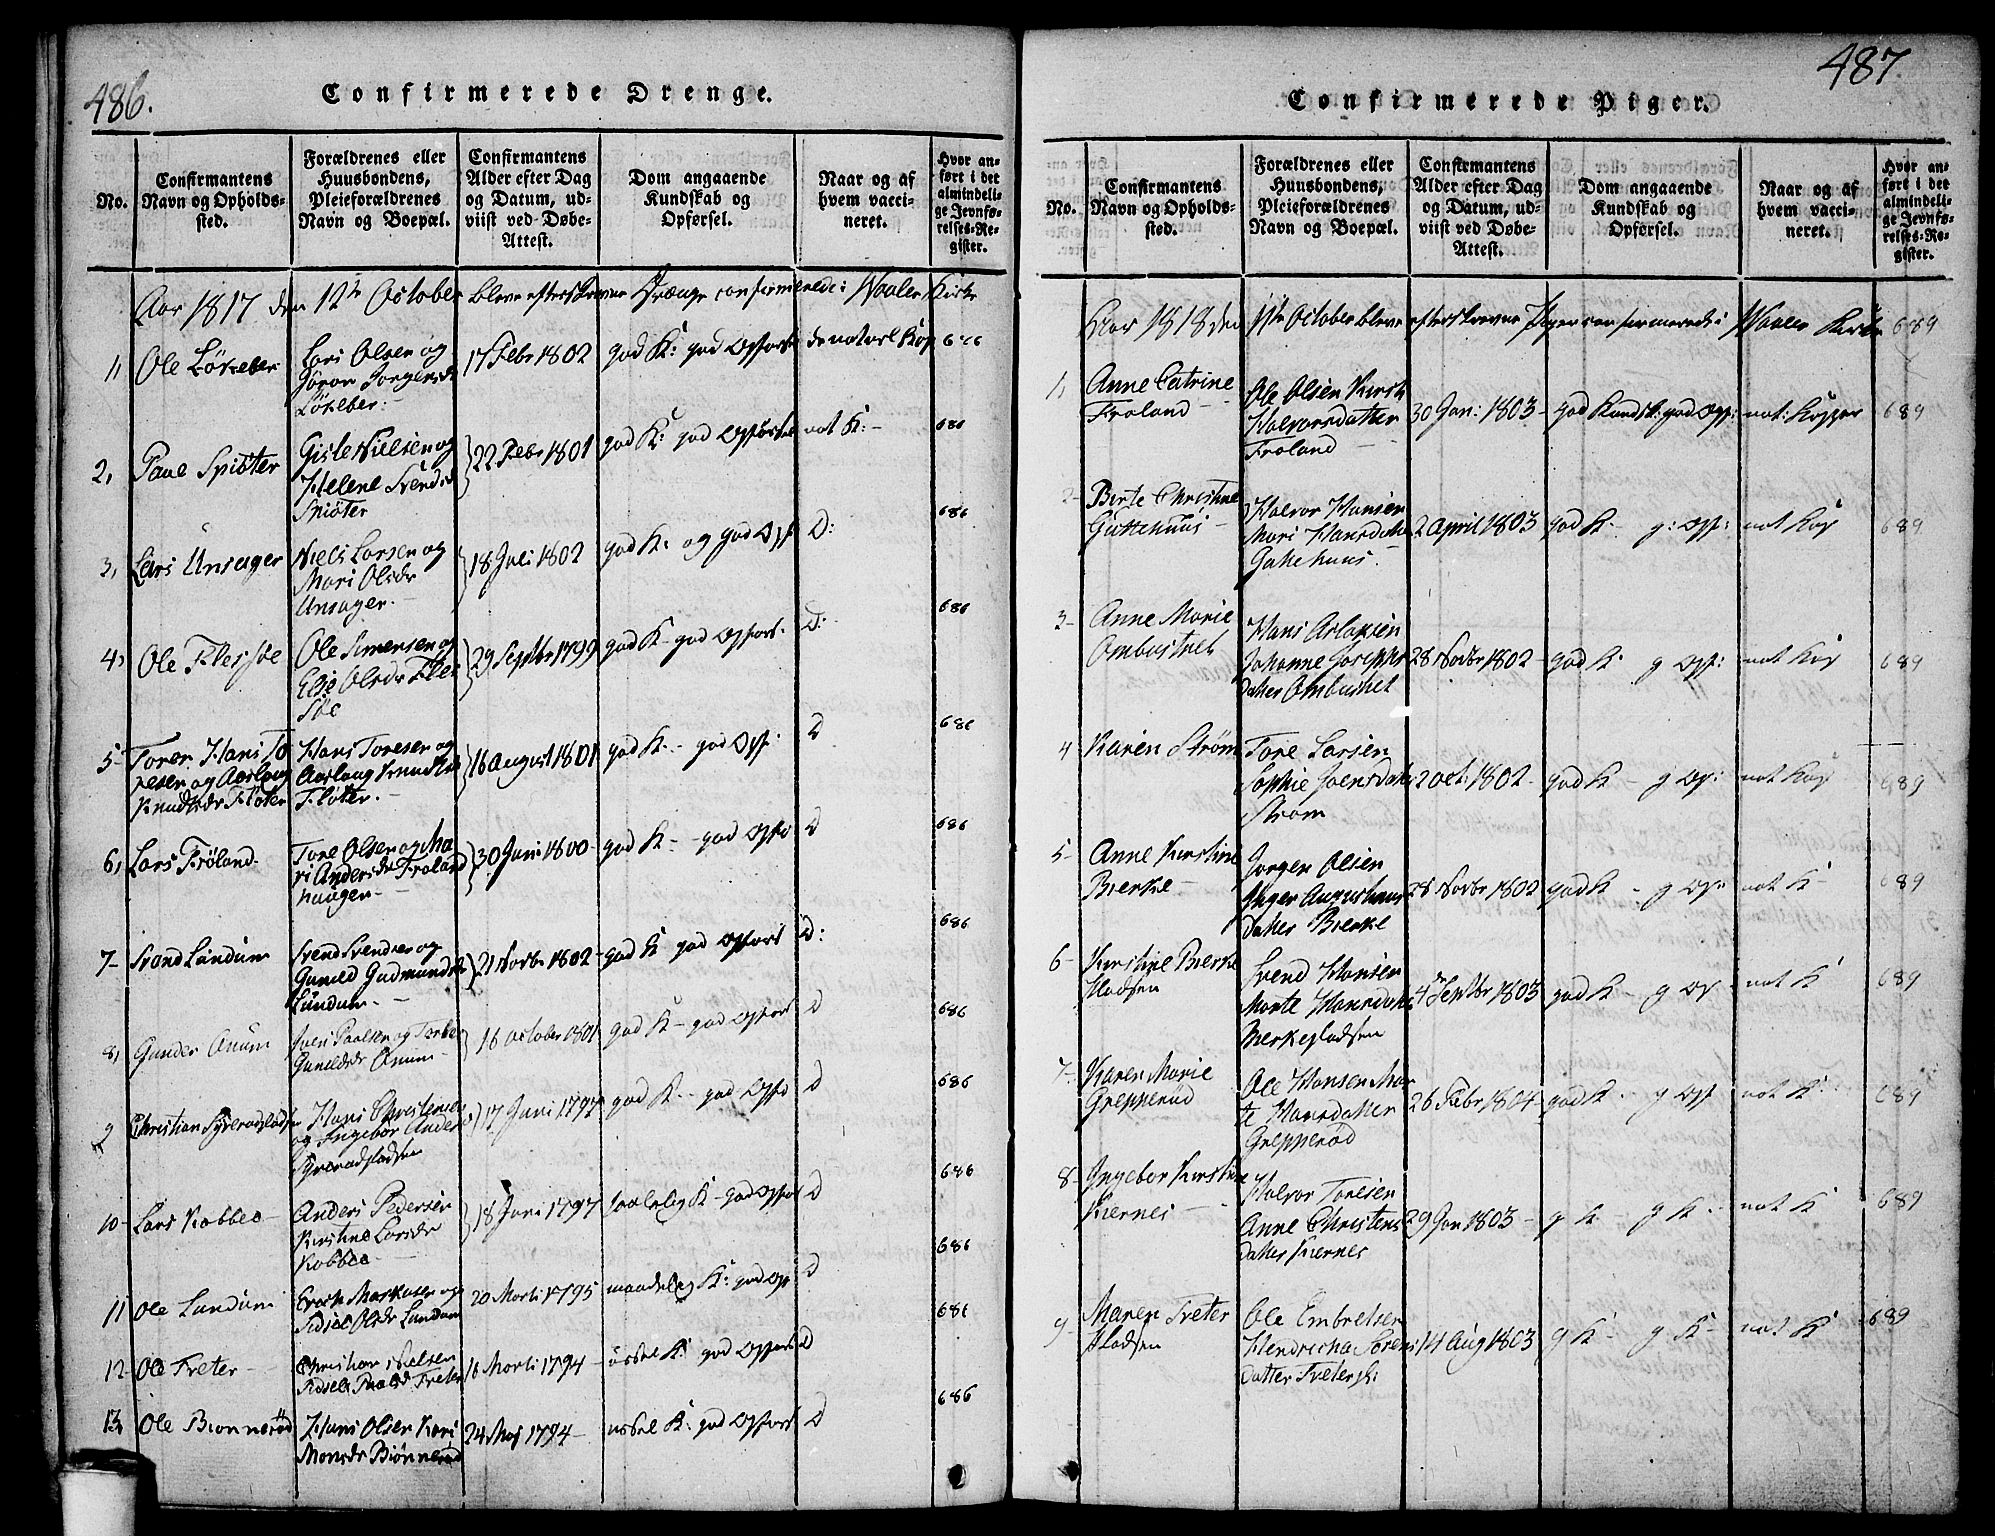 486.
Confirmerede Drenge.
No.
Confirmantens
Navn og Opholds-
sted.
Forældrenes eller
Huusbondens,
Pleieforældrenes
Navn og Boepæl.
Confirmantens
Alder efter Dag
og Datum, ud-
viist ved Døbe-
Attest.
Dom angaaende
Kundskab og
Opførsel.
Naar og af
hvem vacci-
neret.
Hvor an-
ført i det
almindeli-
ge Jevnfø-
relses-Re-
gister.
Aar 1817 den 12te October bleve efterskrevne Drænge confirmerede i Waaler Kirke
1, Ole Løkeber
Lars Olsen og
Jøron Jørgensdr
Løkeber
17 Febr 1802
god K: god Opførsel
de naturl Kop
686
2, Paul Spiøter
Gisle Nielsen og
Helene Svendsd
Spiøter
22 Febr 1801
god K: god Opførsel
nat K: -
686
3, Lars Unsager
Niels Larsen og
Mari Olsdr
Unsager.
18 Juli 1802
god K: og god Opf
D:
686
4, Ole Flessøe
Ole Simensen og
Else Olsdr Fles
søe
29 Septbr 1799
god K- god Opførs.
D:
686
5- Torer Hans To
resen og Aaslaug
Knudsdr Fløter
Hans Toresen og
Aaslaug Knudsdr
Fløter.
16 August 1801
god K.- god Opf.
D
686
6, Lars Frøland
Tore Olsen og Ma
ri Andersdr Froland
haugen
30 Juni 1800
god K- god Opfø
D
686
7- Svend Lundum
Svend Svendsen og
Gunild Gudmundsd
Lundum.
21 Novbr 1802
god K god Opførs
D:
686
8, Gunder Anum
Paalsen og
Gunildsdr Anum
16 October 1801
god K- god Opførs
D
686
9 Christian
Hans Christensen
og Ingebor Anders
17 Juni 1797
god K.- god Opfø
D
686
10- Lars Kobbeo
Anders Pedersen
Kirstine Larsdr
Kobbeo
18 Juni 1797
taalelig K- god Opførs
D
686
11 Ole Lundum
Erich Markusen og
Sidsel Olsdr Lundum
20 Marti 1795
maadelig K: god Op
D
686
12- Ole Treter
Christian Nielsen
Sidsel Paalsd Treter
16 Marti 1794
ussel K: god Opførs
D
686
13, Ole Bionnerød
Hans Olsen Kari
Monsdr Biønnerød
24 Maj 1794
ussel K: god Opførs
D
487
Confirmerede Piger.
No.
Confirmantens
Navn og Opholds-
sted.
Forældrenes eller
Huusbondens,
Pleieforældrenes
Navn og Boepæl.
Confirmantens
Alder efter Dag
og Datum, ud-
viist ved Døbe-
Attest.
Dom angaaende
Kundskab og
Opførsel.
Naar og af
hvem vacci-
neret.
Hvor an-
ført i det
almindeli-
ge Jevnfø-
relses-Re-
gister.
Aar 1818 den 11te October bleve efterskrevne Piger confirmerede i Waaler Kirke 689
1, Anne Catrine
Froland
Ole Olsen Kirsti
Halvorsdatter
Froland
30 Jan: 1803
god Kundsk: god Opf:
nat: Kopper
689
2- Birte Christine
Guttehuus
Halvor Hansen
Mari Hansdatter
Guttehuus.
2 April 1803
god K- g: Opf:
nat Kop
689
3- Anne Marie
Ombustvet
Hans Aslaksen
Johanne Josephs
datter Ombustvet
28 Novbr 1802
god K- g Opf:
nat Kop
689
4 Karen Strøm
Tore Larsen
Sophie Joensdatter
Strøm
2 Oct: 1802
god K - g Op:
nat Kop
689
5- Anne Kirstine
Bierke
Jørgen Olsen
Inger Augustinus
datter Bierke
28 Novbr 1802
god K - g Op:
nat K
689
6- Kirstine Bierke
Pladsen
Svend Hansen
Marte Hansdatter
Bierkepladsen
4de Septbr 1803
god K - g Op -
nat K
689
7- Karen Marie
Grepperød
Ole Hansen Mar
te Hansdatter
Grepperød
26 Febr 1804
god K - g Opf
nat K
689
8- Ingebor Kirstine
Kiernes
Halvor Toresen
Anne Christens
datter Kiernes
29 Jan 1803
g K - g K -
nat K
689
9- Maren Treter
Pladsen
Ole Embretsen
Hendricha Sørens
datter Treterpl:
14 Aug 1803
g K - g K -
nat K
689